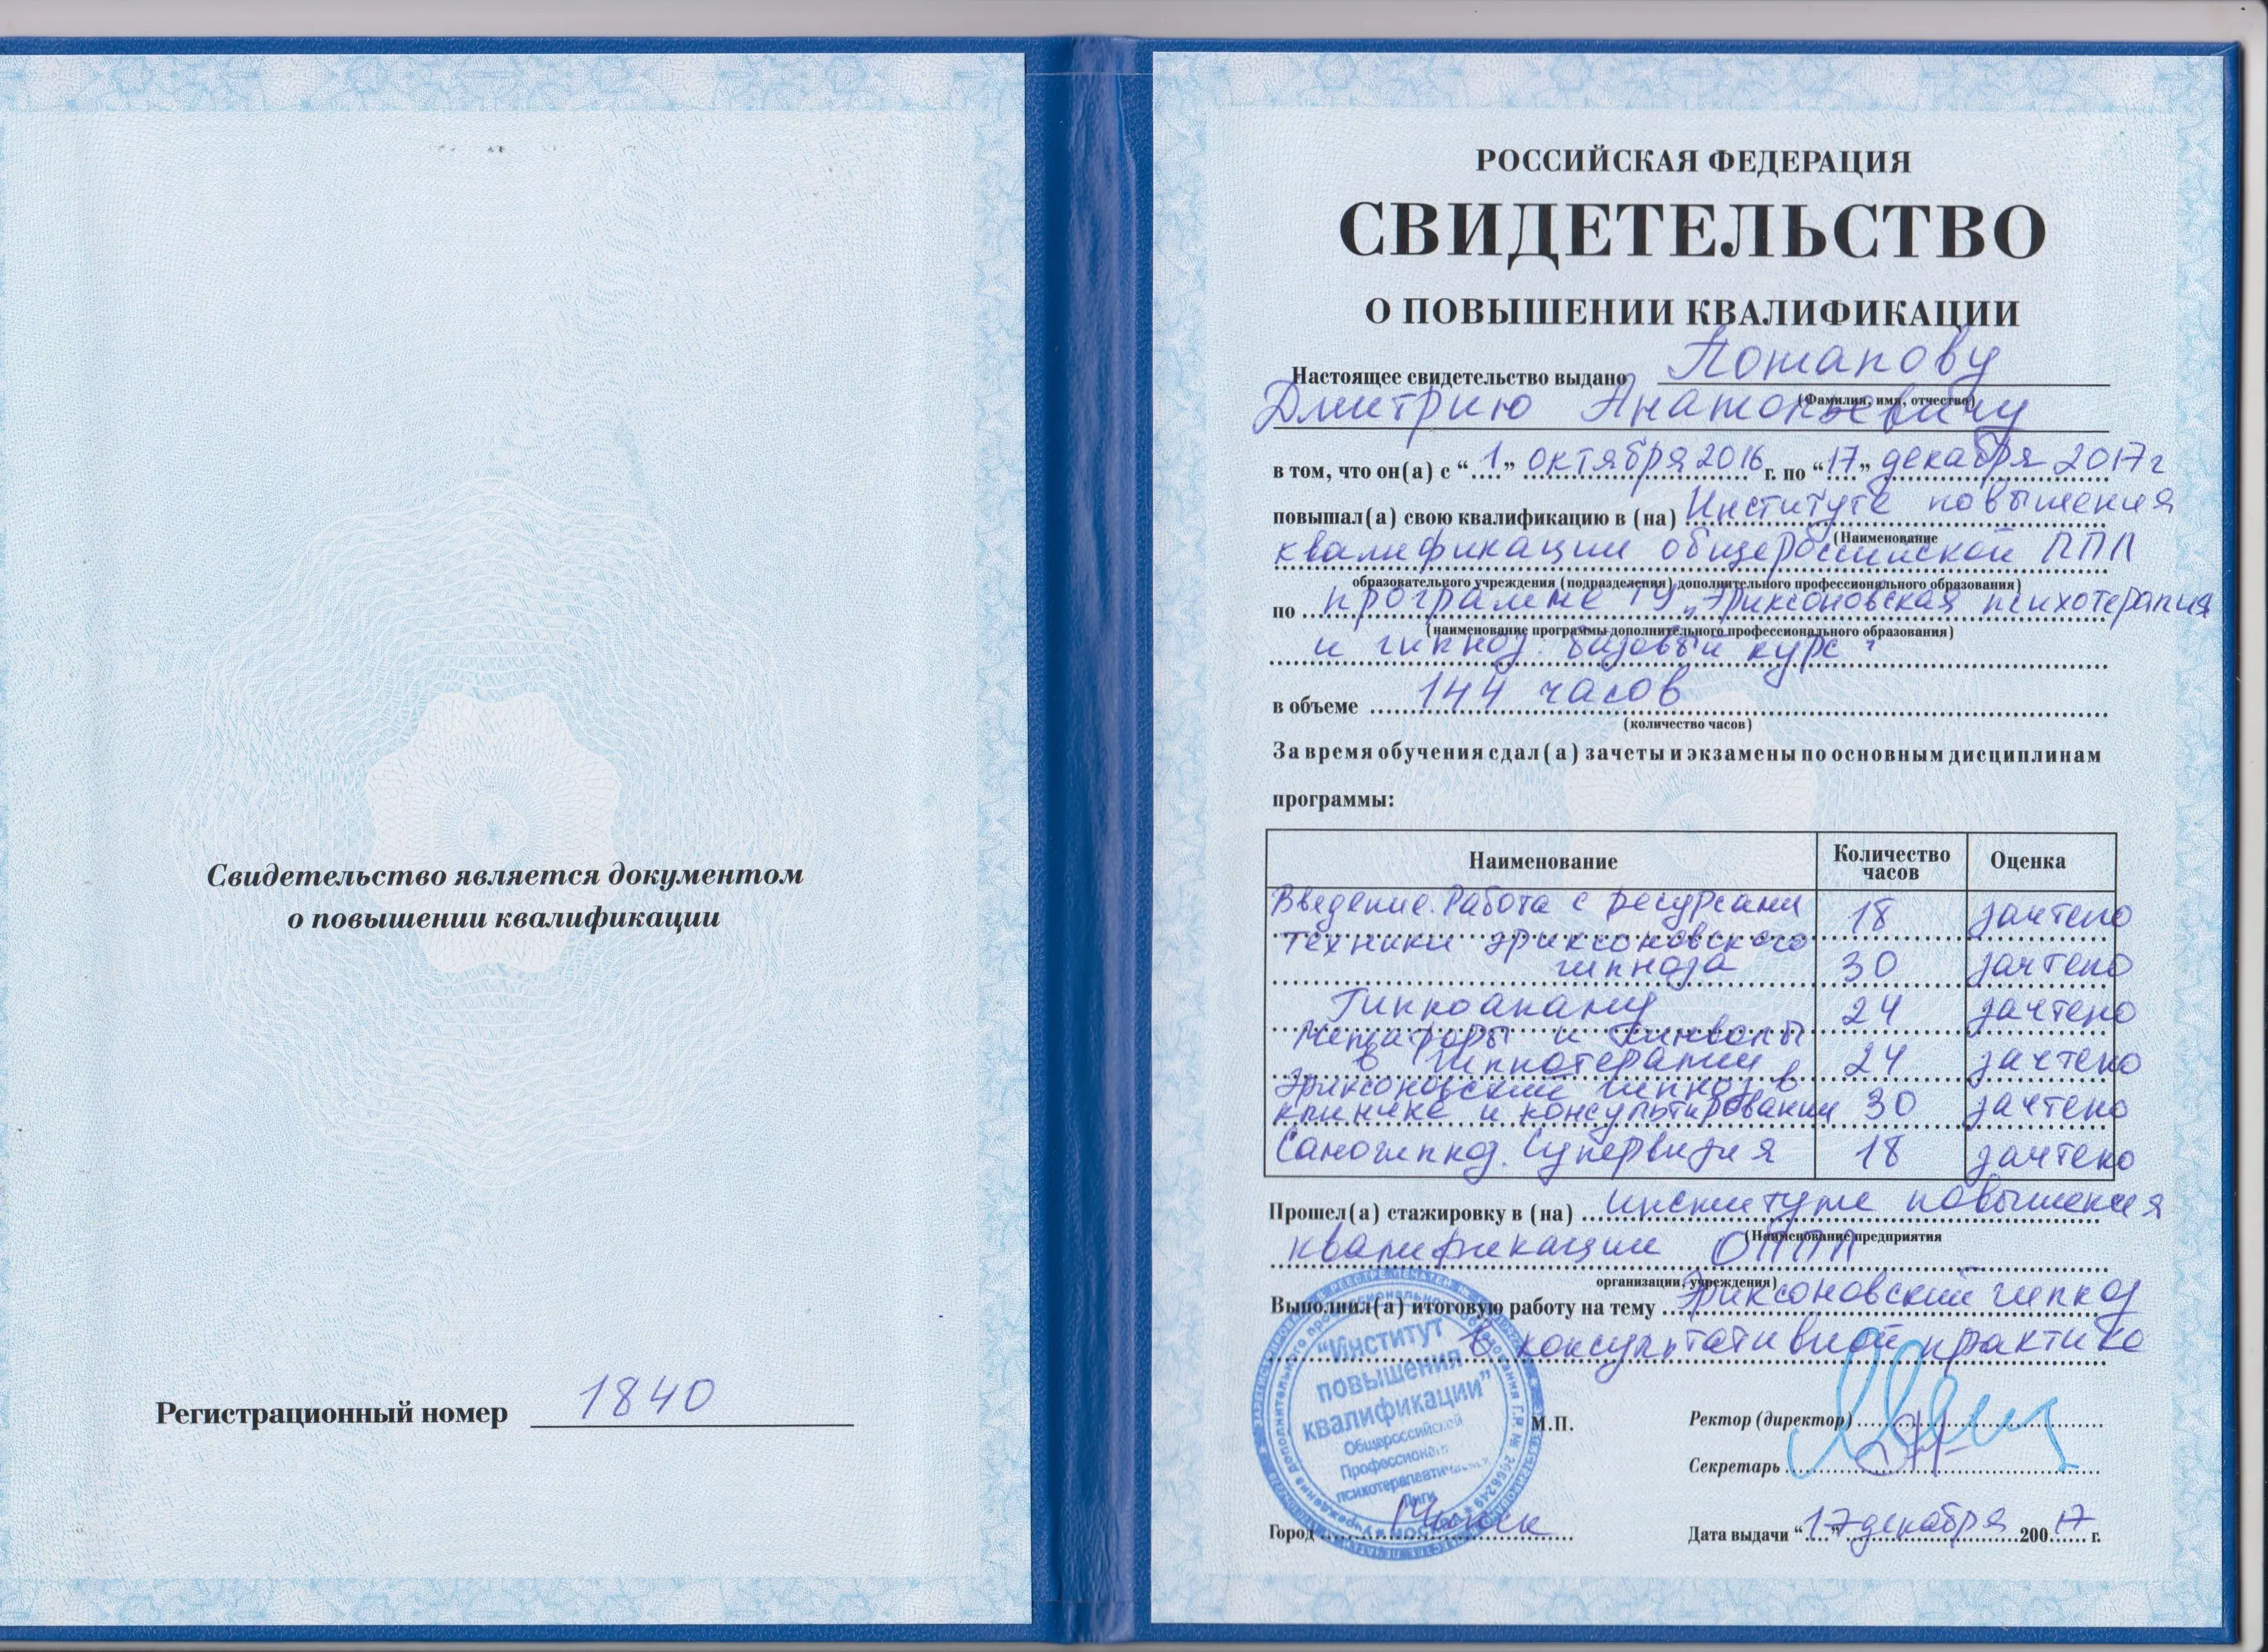 Свидетельство является документом
о повышении квалификации
Регистрационный номер 1840
РОССИЙСКАЯ ФЕДЕРАЦИЯ
СВИДЕТЕЛЬСТВО
О ПОВЫШЕНИИ КВАЛИФИКАЦИИ
Настоящее свидетельство выдано Потапову
(Фамилия, имя, отчество)
Дмитрию Анатольевичу
в том, что он(а) с “1” октября 2016 г. по “17” декабря 2017 г
повышал(а) свою квалификацию в (на) Институте повышения
(Наименование
квалификации общероссийской ППЛ
образовательного учреждения (подразделения) дополнительного профессионального образования)
по программе ТУ „Эриксоновская психотерапия
(наименование программы дополнительного профессионального образования)
и гипноз. Базовый курс"
в объеме 144 часов
(количество часов)
За время обучения сдал(а) зачеты и экзамены по основным дисциплинам
программы:
Наименование Количество часов Оценка
Введение. Работа с ресурсами 18 зачтено
Техники эриксоновского
гипноза 30 зачтено
Гипноанализ 24 зачтено
Метафоры и символы
в гипнотерапии 24 зачтено
Эриксоновский гипноз в
клинике и консультировании 30 зачтено
Самогипноз. Супервизия 18 зачтено
Прошел(а) стажировку в (на) институте повышения
(Наименование предприятия
квалификации ОППЛ
организации, учреждения)
Выполнил(а) итоговую работу на тему Эриксоновский гипноз
в консультативной практике
“Институт
повышения
квалификации”
Общероссийской
Профессиональной
психотерапевтической
Лиги
М.П.
Ректор (директор)
Секретарь
Город
Дата выдачи “17” декабря 200 17 г.